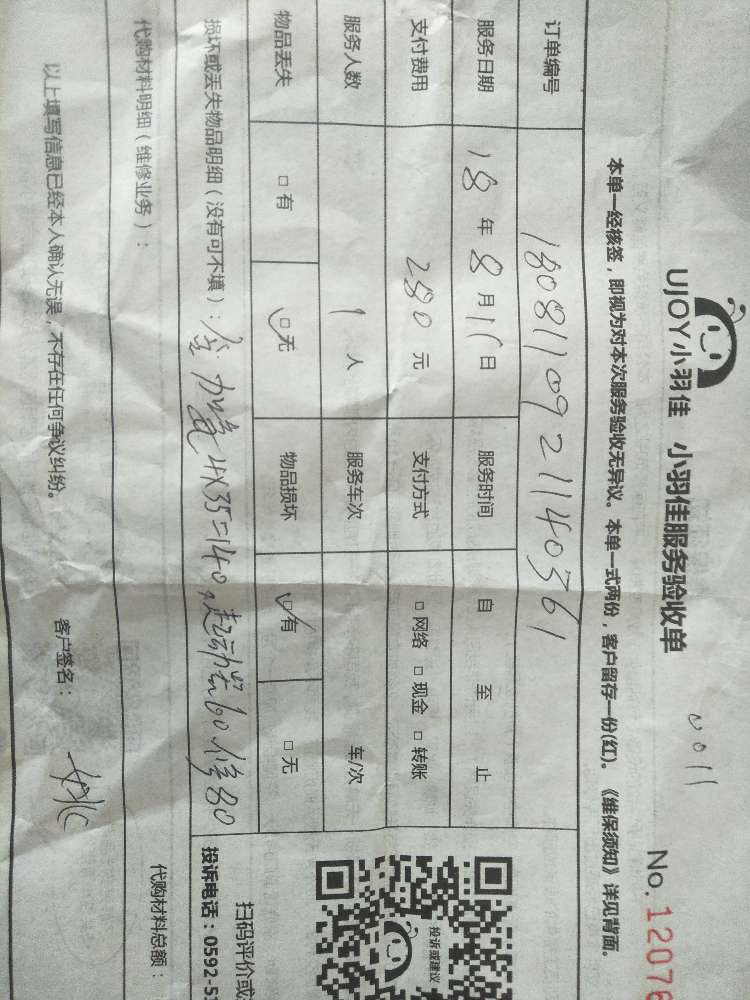 UJOY小羽佳 小羽佳服务验收单
No.12076
本单一经核签，即视为对本次服务验收无异议。本单一式两份，客户留存一份(红)。《维保须知》详见背面。
订单编号 1808110921140361
服务日期 18年8月11日 服务时间 自 至 止
支付费用 280元 支付方式 □网络 □现金 □转账
服务人数 1人 服务车次 车/次
物品丢失 □有 □无 物品损坏 □有 □无
损坏或丢失物品明细（没有可不填）： 4X35=140,起动 60 修80
代购材料明细（维修业务）： 代购材料总额：
以上填写信息已经本人确认无误，不存在任何争议纠纷。 客户签名：
投诉或建议
扫码评价或
投诉电话：0592-5